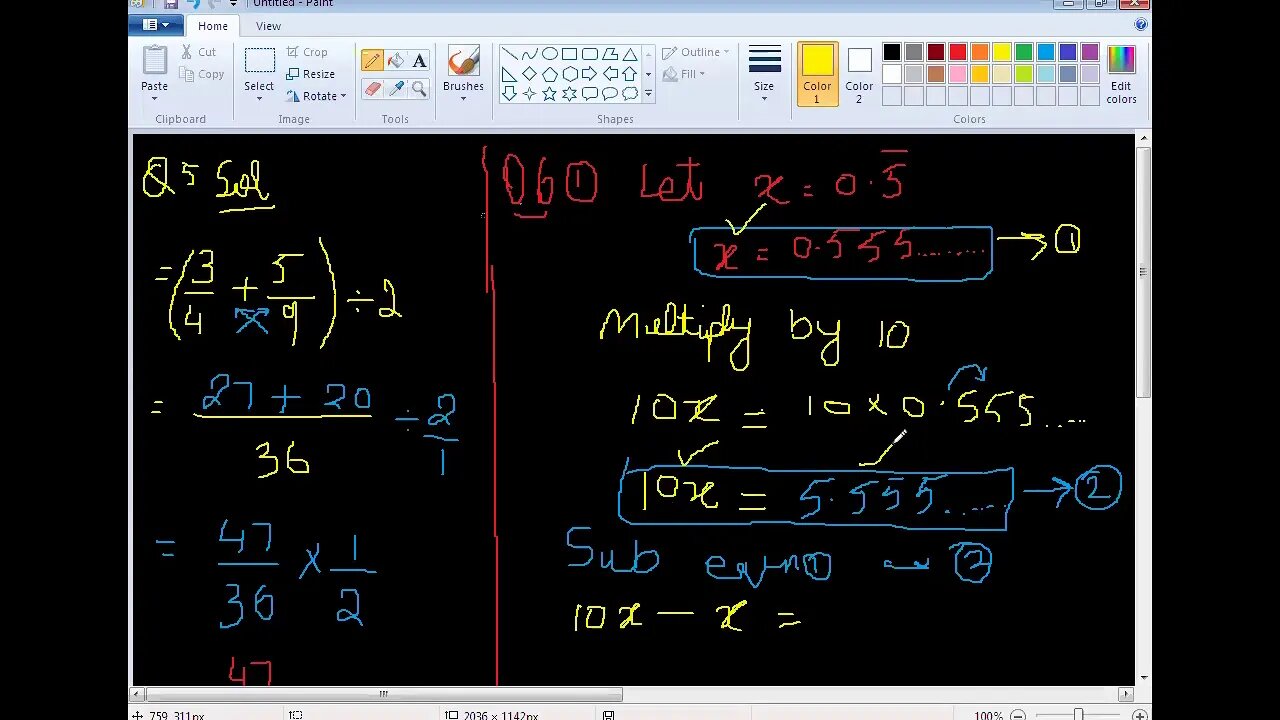 Untitled - Paint
Home View
Paste
Cut
Copy
Clipboard
Select
Crop
Resize
Rotate
Image
Tools
Brushes
Shapes
Outline
Fill
Size
Color 1
Color 2
Edit colors
Colors
Q5 Sol
= (3/4 + 5/9) ÷ 2
= 27 + 20 / 36 ÷ 2/1
= 47/36 × 1/2
47
Q6 ① Let x = 0.5̅
x = 0.555........ → ①
Multiply by 10
10x = 10 × 0.555....
10x = 5.555...... → ②
Sub eqn ① — ②
10x — x =
759, 311px
2036 × 1142px
100%